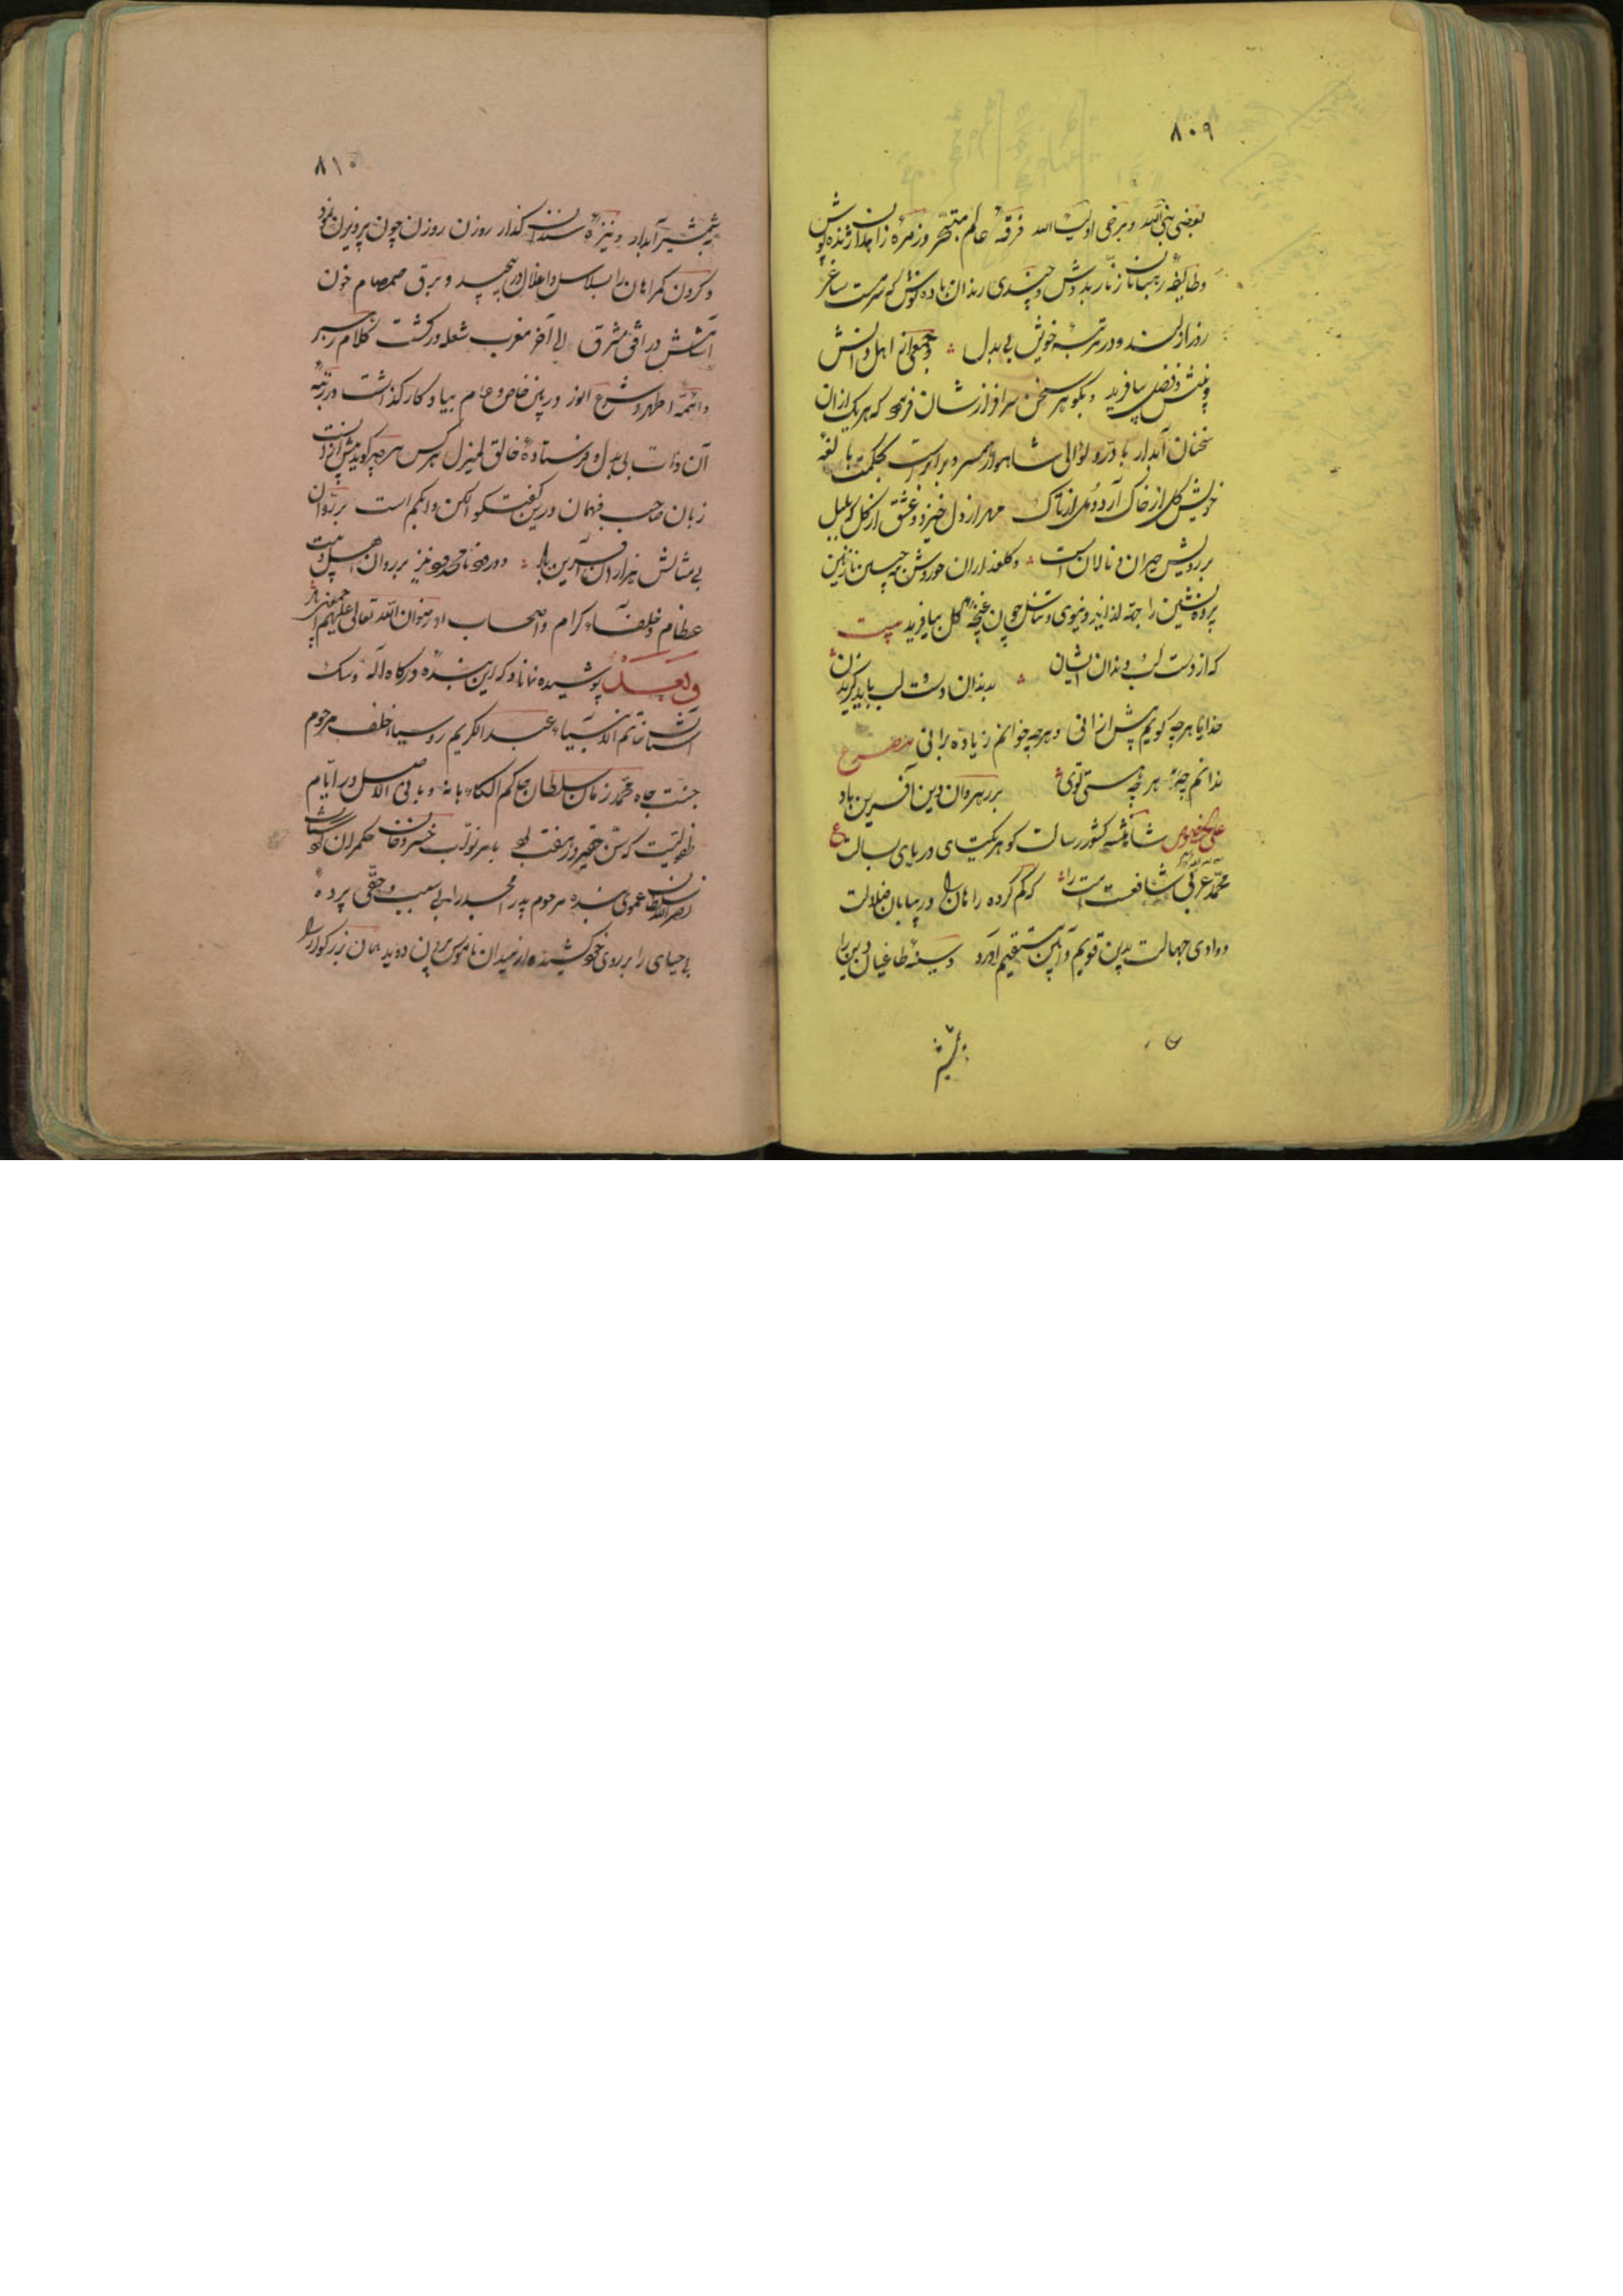 ۸۰۹
بعضی نبی الله و برخی اولیاء الله فرقهٔ عالم متبحر و زمرهٔ زاهدان ژنده پوش
و طایفهٔ رهبانان زنار بر دوش و چندی رندان باده نوش که سرمست ساغر
روز ازلند و در مرتبهٔ خویش بی بدل و جمعی از اهل دانش
و بینش و فضل بیافرید و بگوهر سخن سرافرازشان فرمود که هر یک از آن
سخنان آبدار با در و لؤلؤی شاهوار همسر و برابر است بحکمت بالغهٔ
خویش گل از خاک آرد و مل از تاک مهر از دل خیزد و عشق از گل که بلبل
بر رویش حیران و نالان است و گلعذاران حوروش مه جبین نازنین
پرده نشین را جهة لذایذ دنیوی و تناسل چون غنچهٔ گل بیافرید بیت
که از دست لب و دندان ایشان بدندان دست و لب باید گزیدن
خدایا هر چه گویم بیش از آنی و هر چه خوانم زیاده بر آنی مصرع
ندانم چهٔ هر چه هستی توی بر رهروان دین آفرین باد
علی الخصوص شاهنشه کشور رسالت گوهر یکتای دریای بسالت ع
محمد عربی شافعست امت را که گم کرده راهان را در بیابان ضلالت
و وادی جهالت بدین قویم و آیین مستقیم آورد و سینهٔ طاغیان دین را
بشمشیر
۸۱۰
بشمشیر آبدار و نیزهٔ سندان گذار روزن روزن چون پرویزن نمود
و گردن گمراهان را بسلاسل و اغلال در پیچید و برق صمصام خون
آتشش در افق مشرق الی آخر مغرب شعله ور گشت کلام رهبر
و ائمهٔ اطهر و شرع انور در بین خاص و عام بیادگار گذاشت در رتبهٔ
آن ذات بی بدل و فرستادهٔ خالق لمیزل هر کس هر چه گوید بیش از آنست
زبان صاحب فهمان درین گفتگو الکن و ابکم است بر روان
بی مثالش هزاران آفرین باد و درود نامحدود نیز بر روان اهل بیت
عظام و خلفاء کرام و اصحاب او رضوان الله تعالی علیهم اجمعین باد
و بعد پوشیده نماناد که این بندهٔ درگاه اله و سگ
آستان خاتم الانبیاء عبد الکریم روسیاه خلف مرحوم
جنت جاه محمد زمان سلطان حاکم الکاء بانه و بابی الاصل در ایام
طفولیت که سن حقیر در هفت بود بامر نواب خسرو خان حکمران کردستان
نصرالله سلطان عموی بنده مرحوم پدر امجد را بی سبب و حقی پردهٔ
بی حیای را بر روی خود کشیده از میدان ناموس بیرون دوید همان بزرگوار را